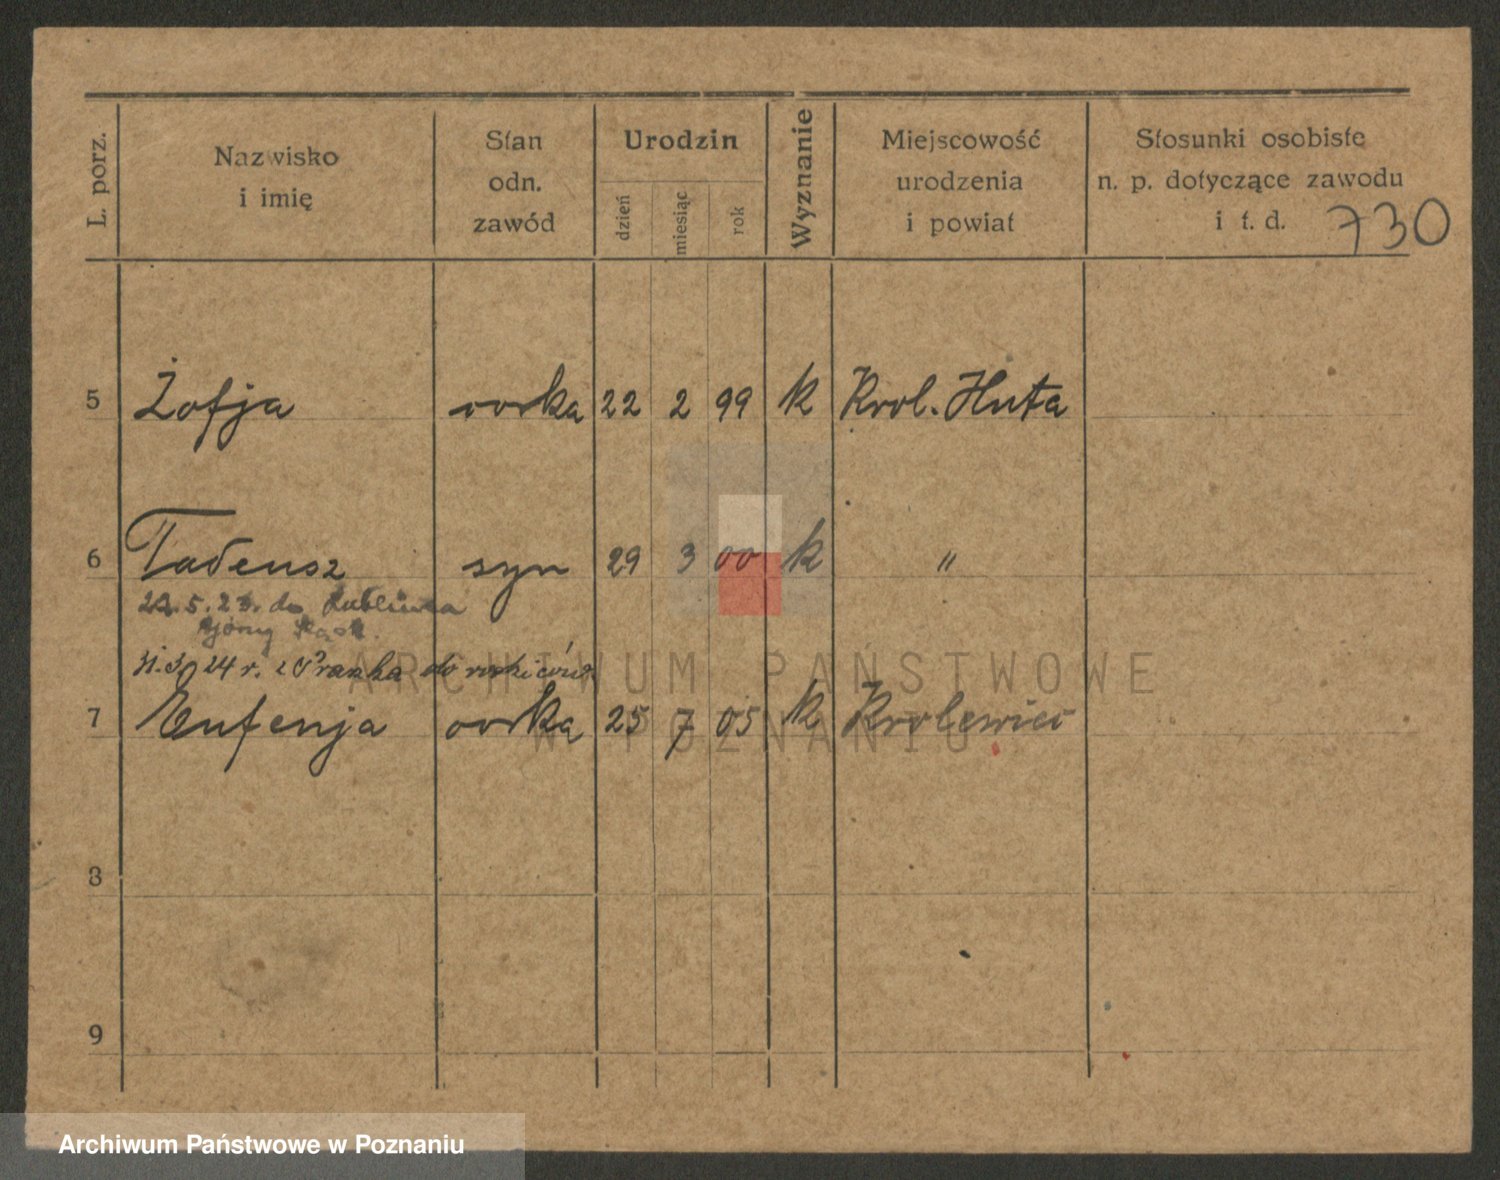 L. porz.
Nazwisko
i imię
Stan
odn.
zawód
Urodzin
dzień
miesiąc
rok
Wyznanie
Miejscowość
urodzenia
i powiat
Stosunki osobiste
n. p. dotyczące zawodu
i t. d.
730
5 Zofja corka 22 2 99 k Krol. Huta
6 Tadeusz syn 29 3 00 k "
22.5.23. do Lublinca
31. 24 r. do rodziców
7 Eufenja corka 25 7 05 k Krolewiec
8
9
ARCHIWUM PAŃSTWOWE
W POZNANIU
Archiwum Państwowe w Poznaniu